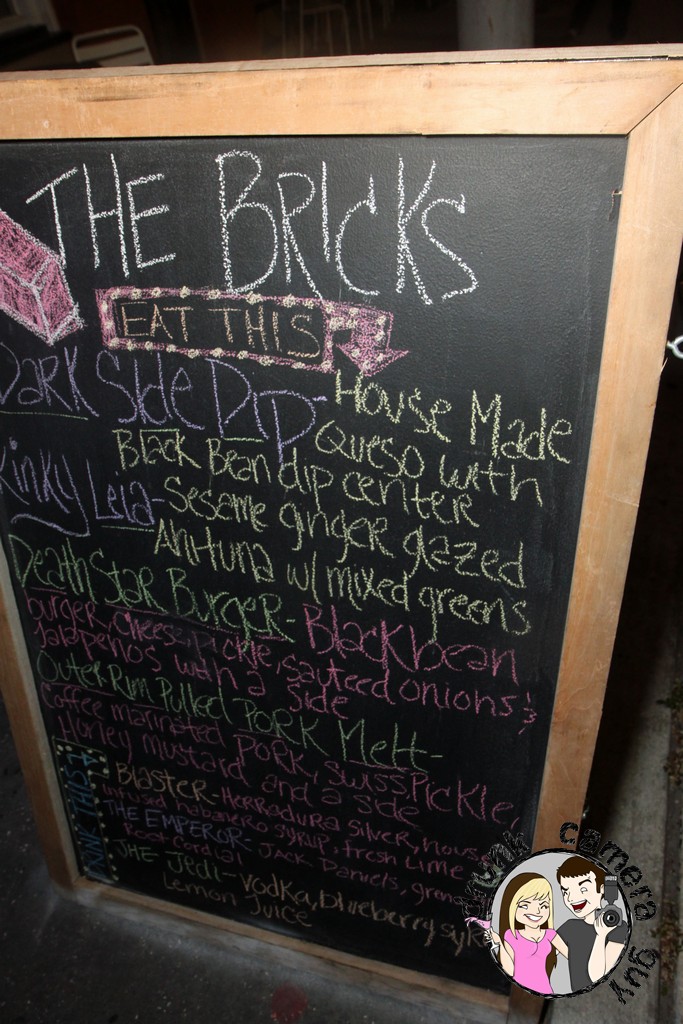 THE BRICKS
EAT THIS
Dark Side Dip - House Made
Queso with
Black Bean dip center
Kinky Leia - Sesame ginger glazed
Ahi tuna w/ mixed greens
Death Star Burger - Black bean
burger, cheese, pickle, sauteed onions &
jalapenos with a side
Outer Rim Pulled Pork Melt -
Coffee marinated pork, swiss, pickle,
Honey mustard and a side
DRINK THIS
Blaster - Herredura Silver, house
infused habanero syrup, fresh lime
THE EMPEROR - Jack Daniels,
Root Cordial
JHE Jedi - Vodka, blueberry
Lemon Juice
drunk camera guy